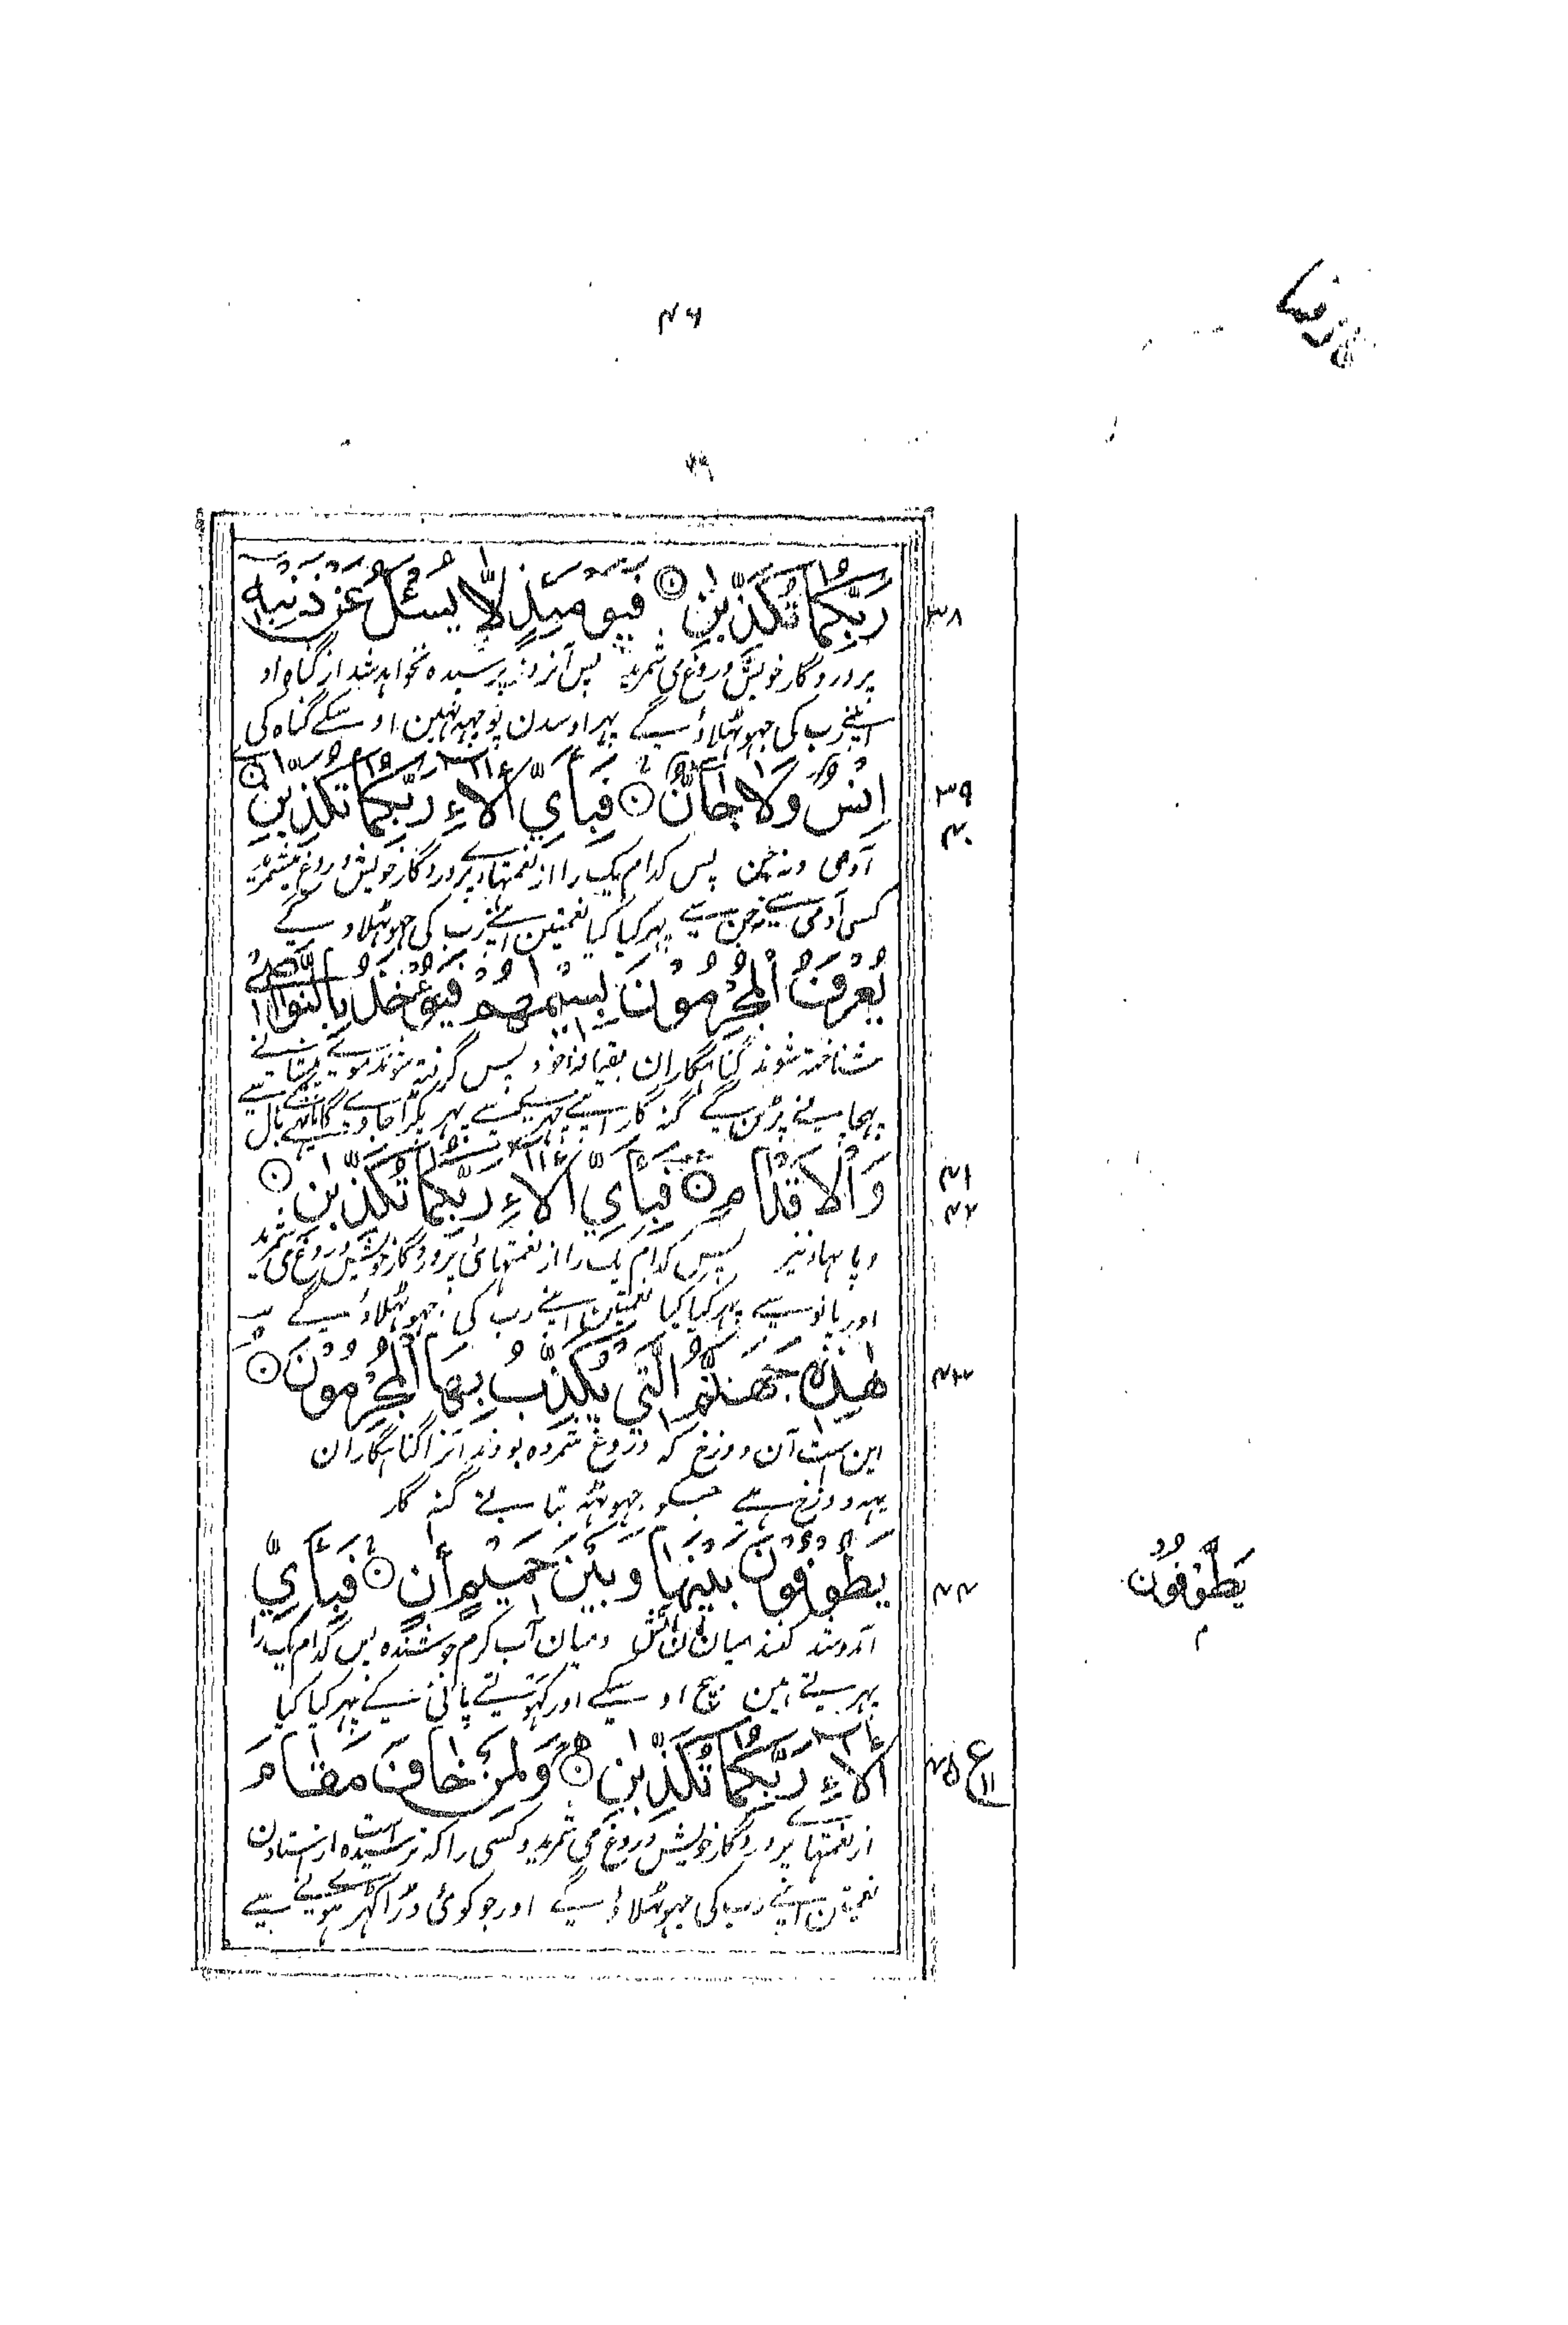 ۴۶
رَبِّكُمَا تُكَذِّبٰنِ ۝ فَيَوْمَئِذٍ لَّا يُسْـَٔلُ عَنْ ذَنْۢبِهٖٓ
۳۸
پروردگار خویش دروغ می شمرید پس آنروز پرسیده نخواهد شد از گناه او
اپنے رب کی جهوٹهلاؤ سیگے پهر اوسدن پوچهہ نهین اوسکے گناه کی
اِنْسٌ وَّلَا جَآنٌّ ۝ فَبِاَيِّ اٰلَآءِ رَبِّكُمَا تُكَذِّبٰنِ ۝
۳۹
۴۰
آدمی و نہ جن پس کدام یک را از نعمتهاے پروردگار خویش دروغ میشمرید
کسی آدمی سے نہ جن سے پهر کیا کیا نعمتین اپنے رب کی جهوٹهلاو سیگے
يُعْرَفُ الْمُجْرِمُوْنَ بِسِيْمٰهُمْ فَيُؤْخَذُ بِالنَّوَاصِيْ
شناختہ شوند گناهگاران بقیافہ خود پس گرفتہ شوند بموے پیشانے
پهچانے پڑین گے گنہ گار اپنے چهریسے پهر پکڑا جاویگا ماتهے کے بال سے
وَالْاَقْدَامِ ۝ فَبِاَيِّ اٰلَآءِ رَبِّكُمَا تُكَذِّبٰنِ ۝
۴۱
۴۲
و پاہا و نیز پس کدام یک را از نعمتهائی پروردگار خویش دروغ می شمرید
اور پانوسے پهر کیا کیا نعمتین اپنے رب کی جهوٹهلاؤ سیگے
هٰذِهٖ جَهَنَّمُ الَّتِيْ يُكَذِّبُ بِهَا الْمُجْرِمُوْنَ ۝
۴۳
این ست آن دوزخ کہ دروغ شمرده بودند آنرا گناهگاران
یہہ دوزخ ہے جسکو جهوٹهہ بتاتے گنہ گار
يَطُوْفُوْنَ بَيْنَهَا وَبَيْنَ حَمِيْمٍ اٰنٍ ۝ فَبِاَيِّ
۴۴
يَطَّوَّفُوْن
آمدوشد کنند میان آن آتش و میان آب گرم جوشنده پس کدام یک را
پهرتے هین بیچ اوسکے اور کهولتے پانی کے پهر کیا کیا
اٰلَآءِ رَبِّكُمَا تُكَذِّبٰنِ ۝ وَلِمَنْ خَافَ مَقَامَ
۴۵ ع ۱۱
از نعمتهاے پروردگار خویش دروغ می شمرید و کسی را کہ ترسیده است از استادن
نعمتین اپنے رب کی جهوٹهلاؤ سیگے اور جو کوئی ڈرا کهڑے هونے سے